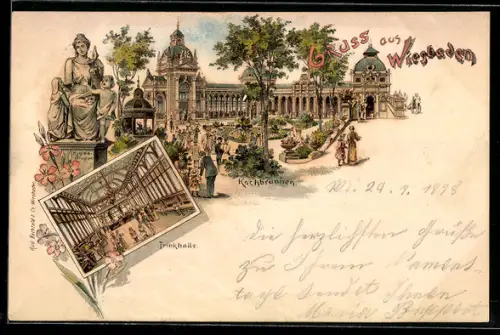 Gruss aus Wiesbaden
Kochbrunnen
Trinkhalle.
29. 1898
Die herzlichsten Grüße
zu Ihrem Namens-
tage sendet Ihnen
Maria